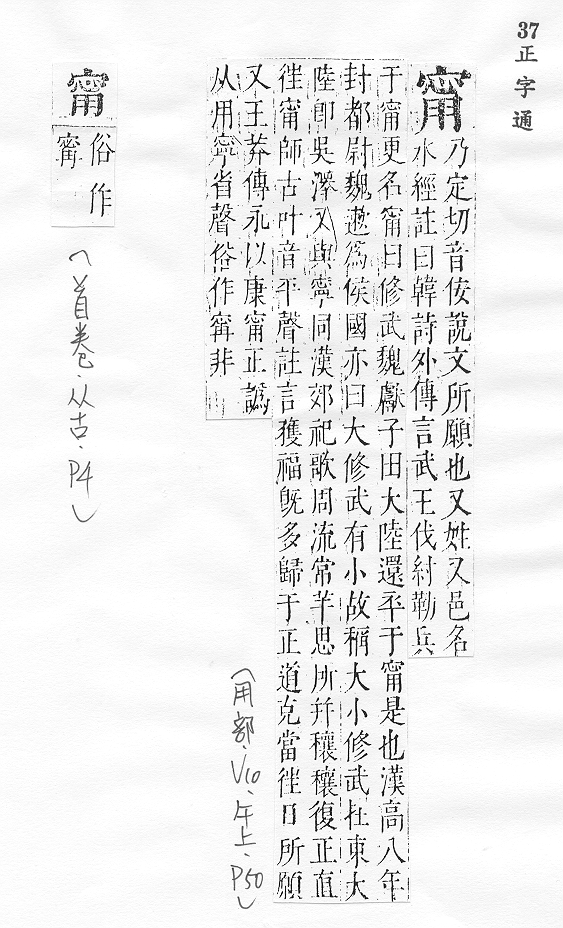 37
正字通
甯
乃定切音佞說文所願也又姓又邑名
水經註曰韓詩外傳言武王伐紂勒兵
于甯更名甯曰修武魏獻子田大陸還卒于甯是也漢高八年
封都尉魏遬為侯國亦曰大修武有小故稱大小修武在東大
陸卽吳澤又與寧同漢郊祀歌周流常羊思所幷穰穰復正直
徃甯師古叶音平聲註言獲福旣多歸于正道克當徃日所願
又王莽傳永以康甯正譌
从用寧省聲俗作寗非
(用部、V10、午上、P50)
甯
俗作
寗
(首卷、从古、P4)